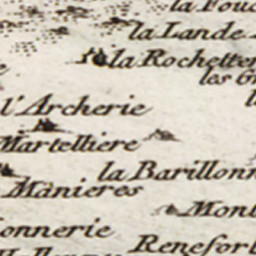 la Fou
la Lande
la Rochette
les G
l'Archerie
Martelliere
la Barillonn
Mànieres
Mont
onnerie
Renefort